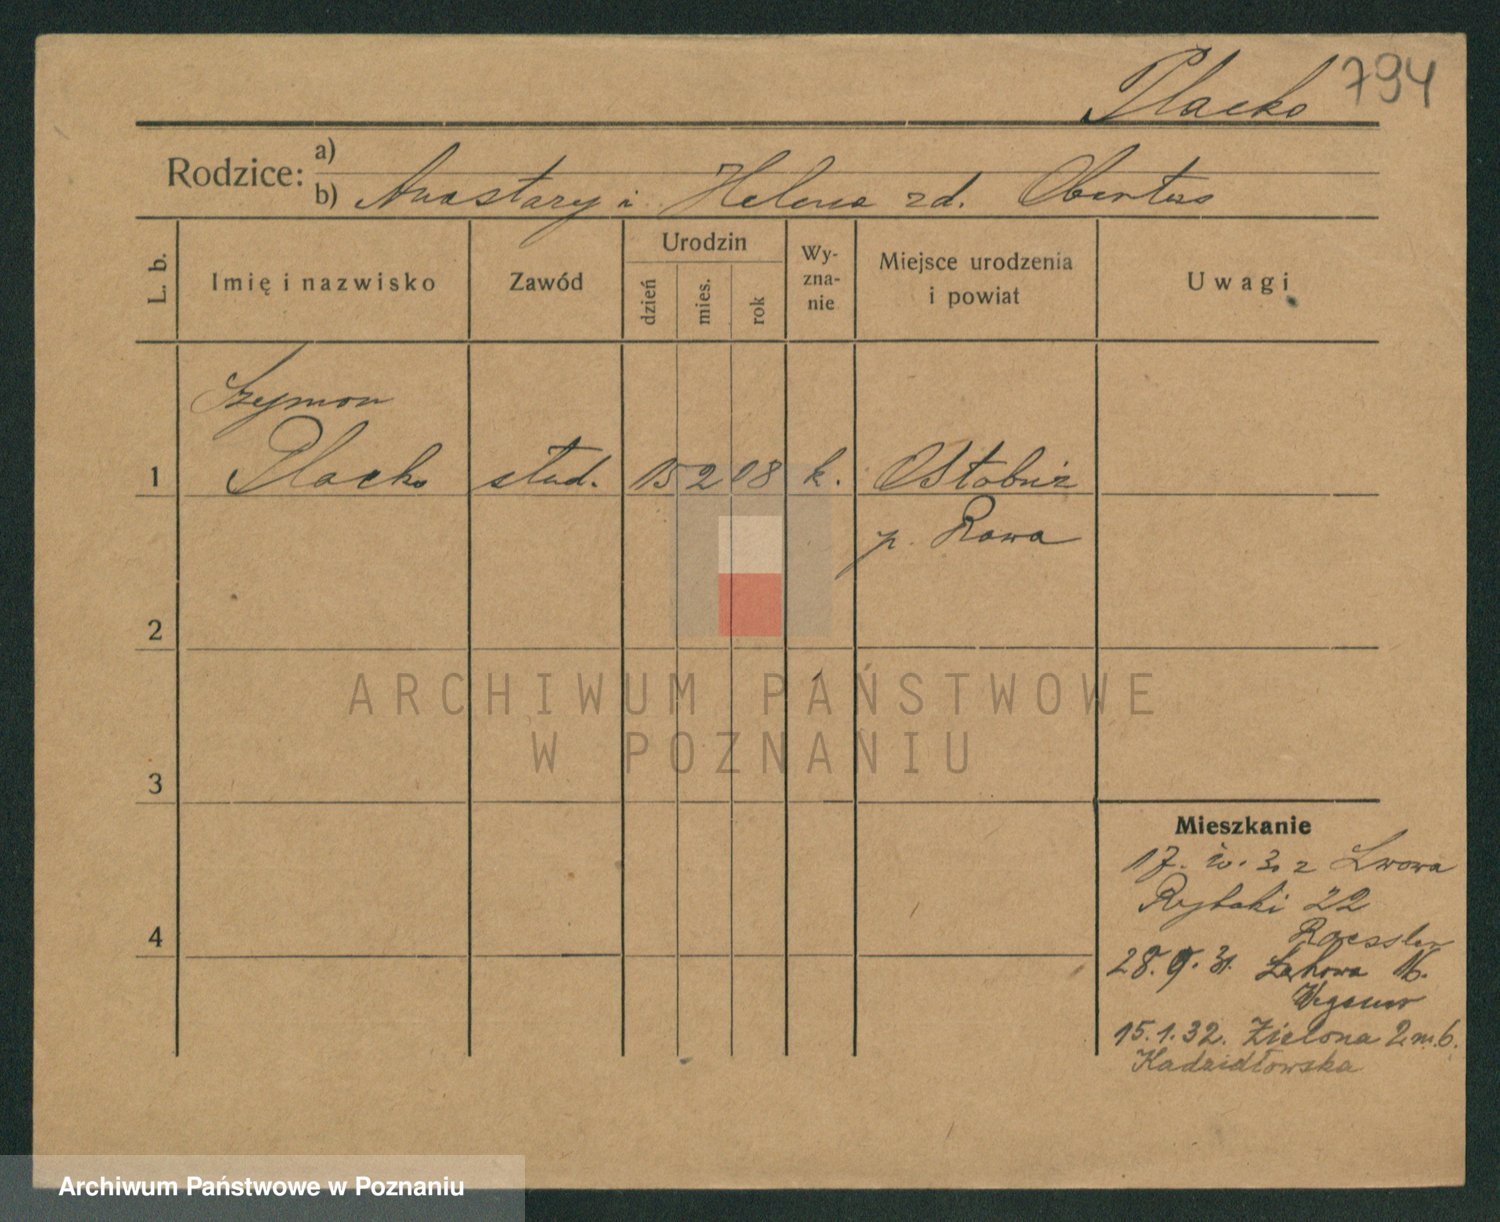 Placko 794
Rodzice: a)
b) Anastazy i Helena zd. Obertas
L. b.
Imię i nazwisko
Zawód
Urodzin
dzień
mies.
rok
Wy-
zna-
nie
Miejsce urodzenia
i powiat
Uwagi
Szymon
1 Placko stud. 15 2 08 k.
p. Rawa
2
3
4
Mieszkanie
17. 30 z Lwowa
Rybaki 22
Roessler
28. 9. 31. Łąkowa 16.
15.1.32. Zielona 2 m. 6.
Kadzidłowska
ARCHIWUM PAŃSTWOWE
W POZNANIU
Archiwum Państwowe w Poznaniu